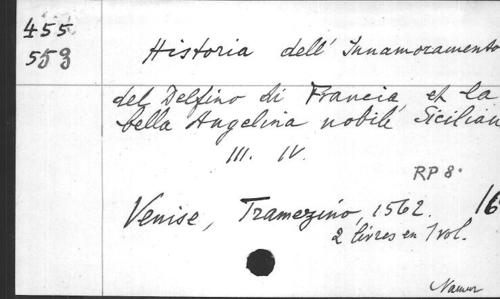 455
553
Historia dell' Innamoramento
del Delfino di Francia, et la
bella Angelina nobile Sicilian
III. IV.
RP 8.
Venise, Tramezino, 1562. 16
2 livres en 1 vol.
Namur